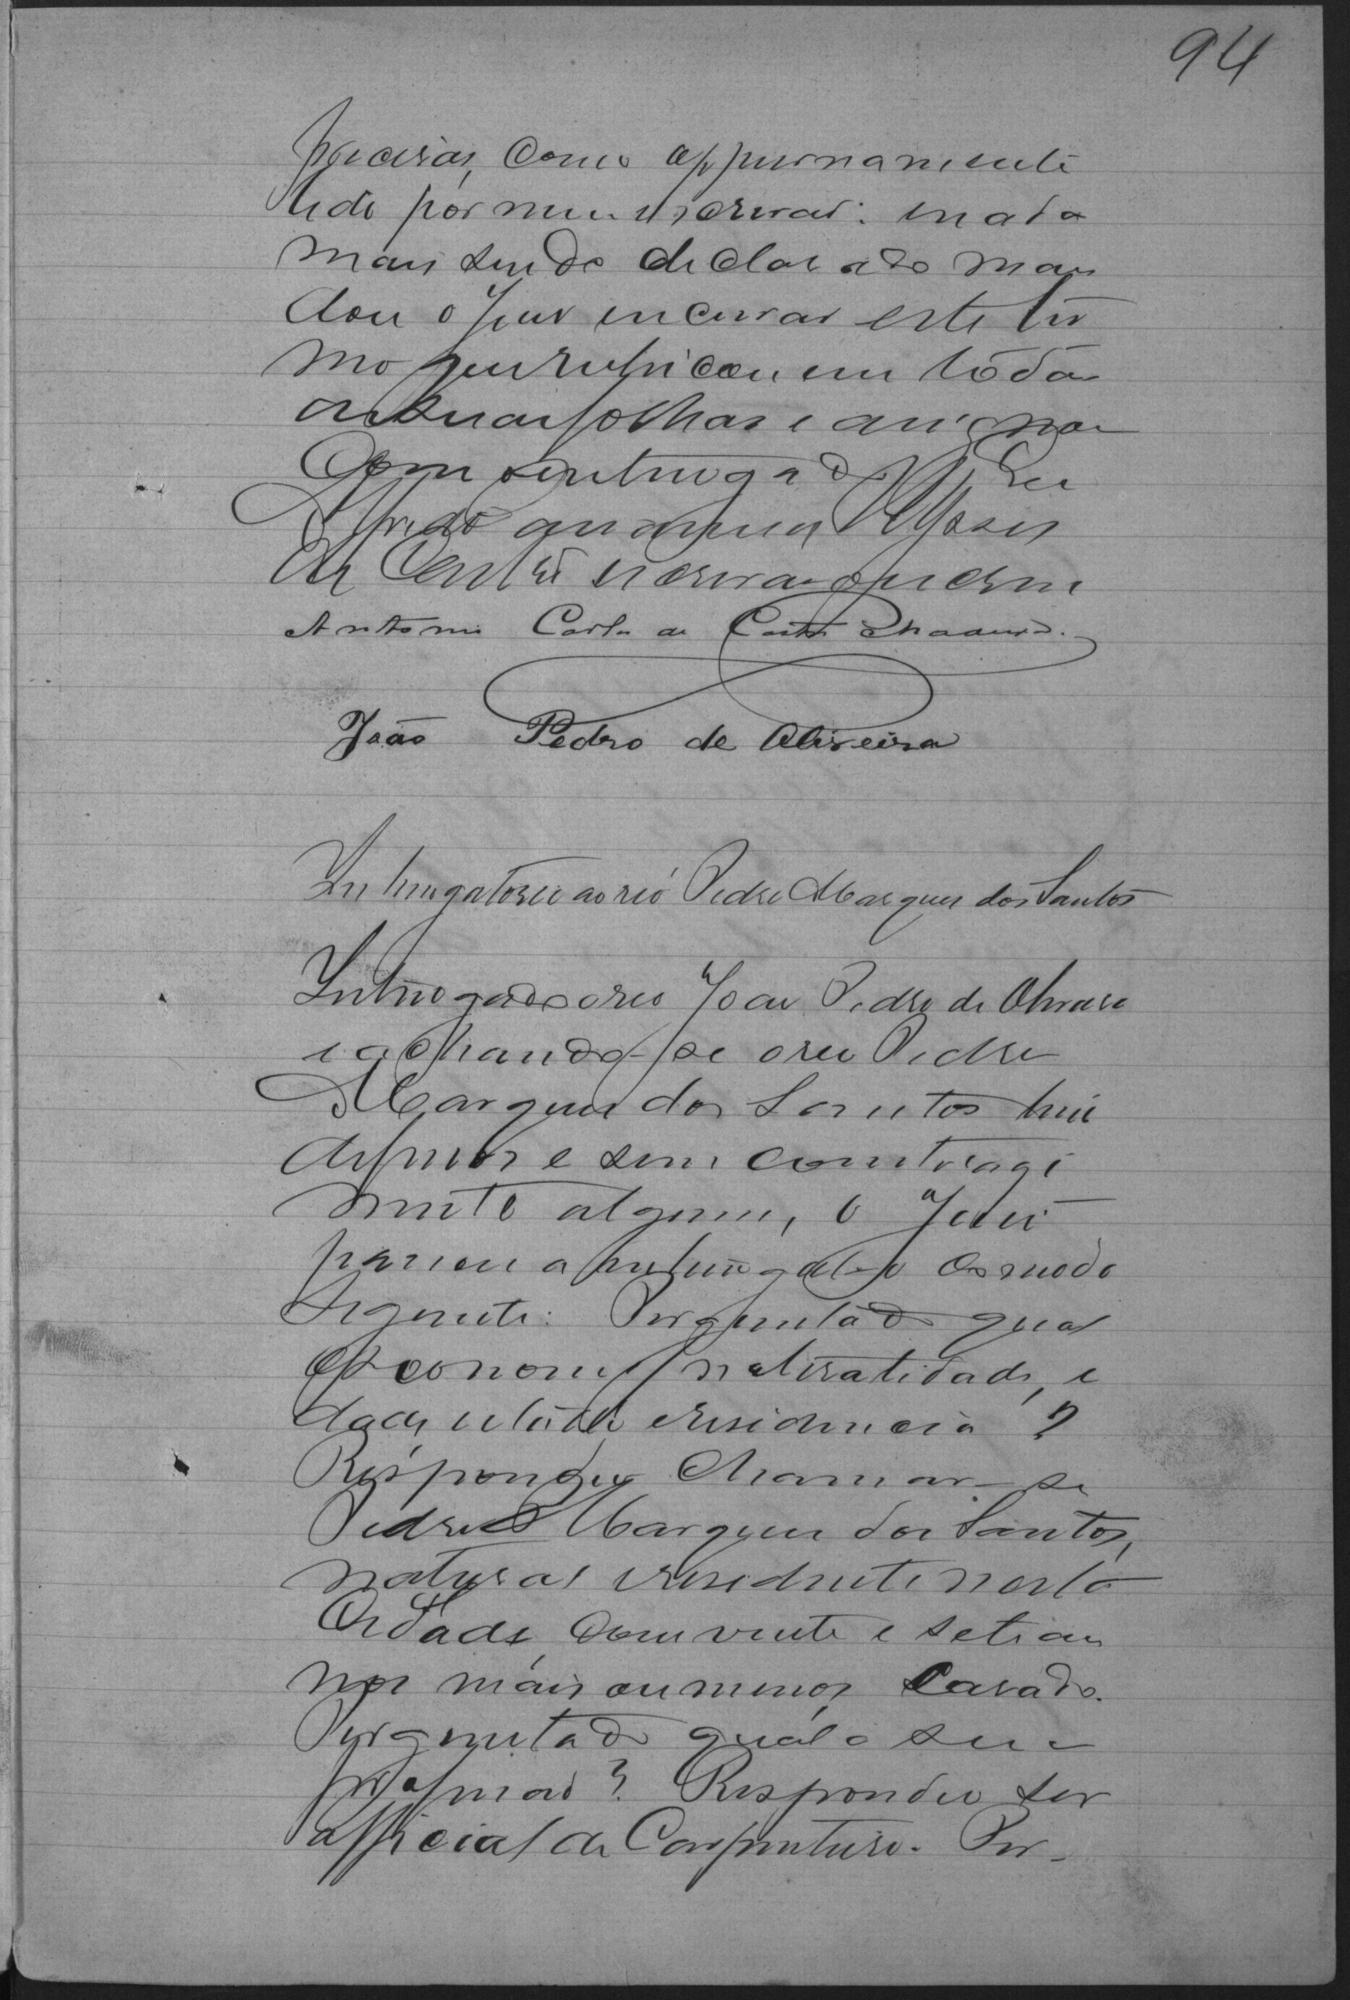 94
como
lido por mim escrivão: e nada
mais sendo declarado man
dou o Juiz encerrar este ter
mo que rubricou em todas
as suas folhas e assigna
com o interrogado. Eu
Alfredo
de escrivão que escrevi
Antonio Carlos de Castro Madeira.
João Pedro de Oliveira
Interrogatorio ao réo Pedro Marques dos Santos
Interrogado o reo João Pedro de Oliveira
e achando-se o reo Pedro
Marques dos Santos livre
de ferros e sem constrangi
mento algum, o Juiz
passou a interrogal-o do modo
seguinte: Perguntado qual
o seo nome, naturalidade, e
dade, estado e residencia?
Respondeu chamar-se
Pedro Marques dos Santos,
natural e residente nesta
Cidade, com vinte e sete an
nos mais ou menos, casado.
Perguntado qual a sua
profissão? Respondeu ser
official de Carpinteiro. Per-